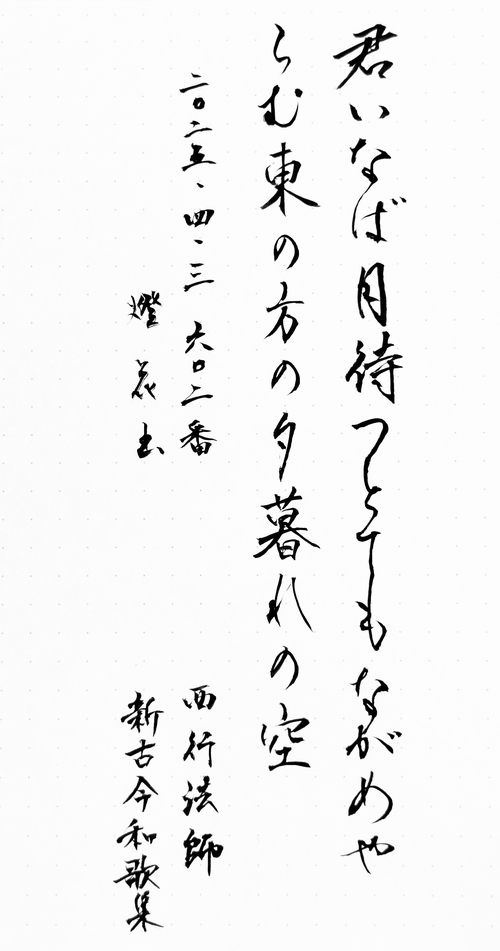 君いなば月待つとてもながめや
らむ東の方の夕暮れの空
二〇二五、四、三 六〇二番
西行法師
燈花
新古今和歌集